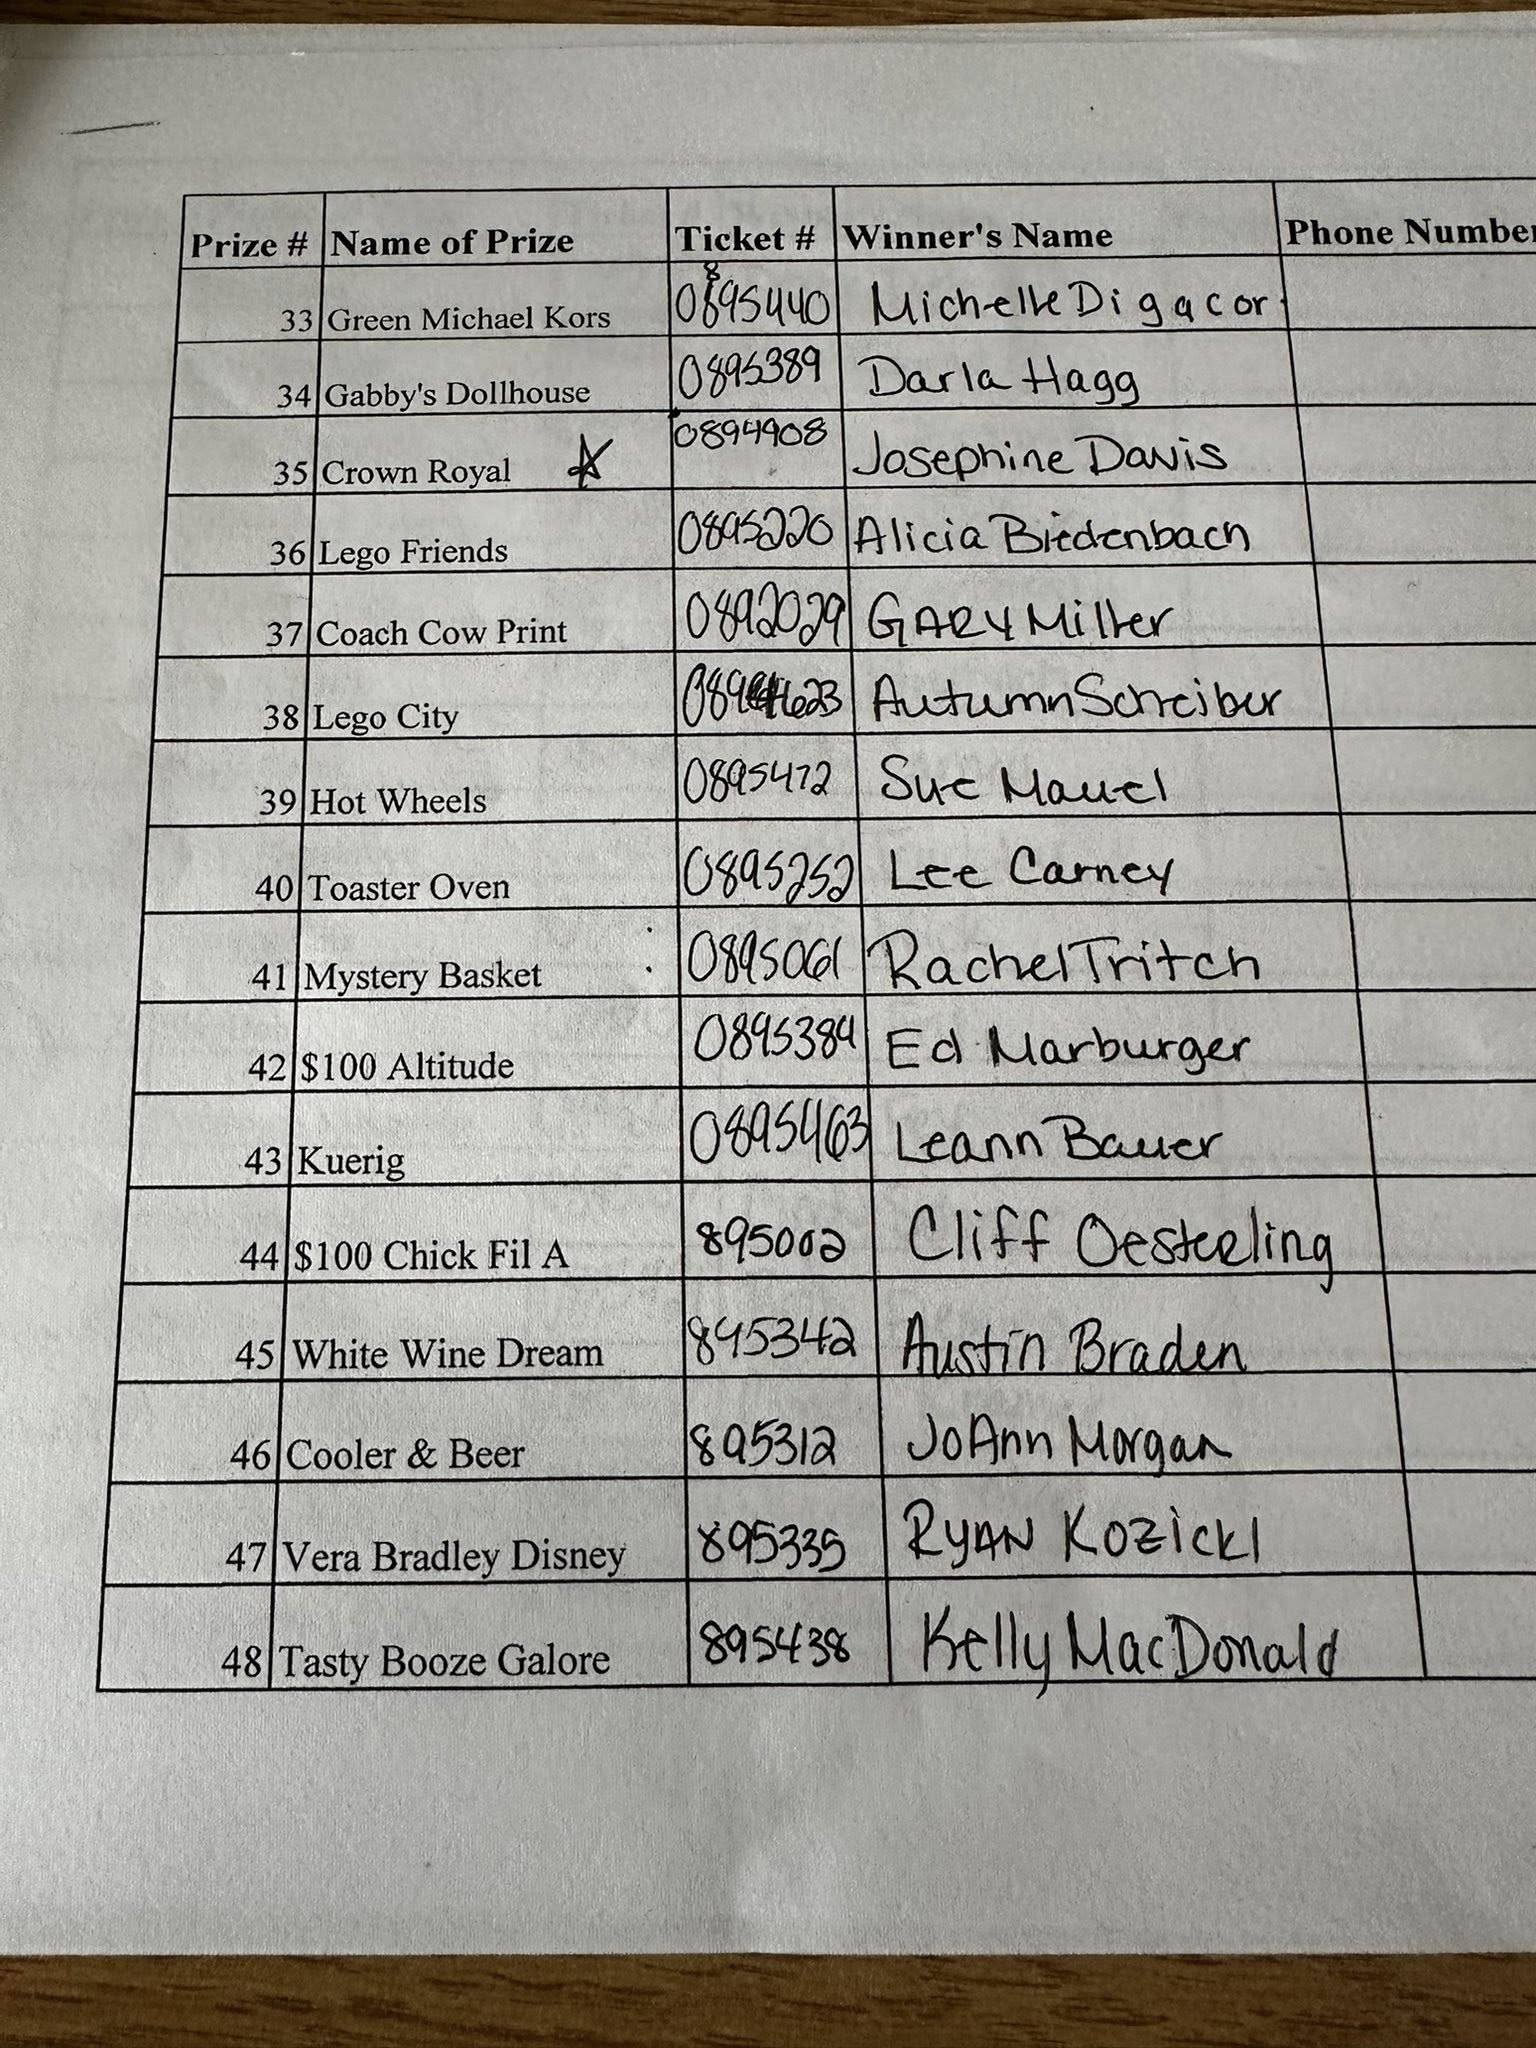 Prize # Name of Prize Ticket # Winner's Name Phone Number
33 Green Michael Kors 0895440 Michelle Digacor
34 Gabby's Dollhouse 0895389 Darla Hagg
35 Crown Royal 0894908 Josephine Davis
36 Lego Friends 0895220 Alicia Biedenbach
37 Coach Cow Print 0892029 GARY Miller
38 Lego City Autumn Schreiber
39 Hot Wheels 0895472 Sue Mauel
40 Toaster Oven 0895252 Lee Carney
41 Mystery Basket 0895061 Rachel Tritch
42 $100 Altitude 0895384 Ed Marburger
43 Kuerig 0895463 Leann Bauer
44 $100 Chick Fil A 895002 Cliff Oesterling
45 White Wine Dream 895342 Austin Braden
46 Cooler & Beer 895312 JoAnn Morgan
47 Vera Bradley Disney 895335 RYAN KOZICKI
48 Tasty Booze Galore 895438 Kelly MacDonald